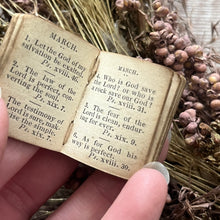 MARCH.
1. Let the God of my
salvation be exalted.
Ps. xviii. 46.
2. The law of the
Lord is perfect, con-
verting the soul.
Ps. xix. 7.
3. The testimony of
the Lord is sure, making
wise the simple.
Ps. xix. 7.
MARCH.
4. Who is God save
the Lord? or who is
a rock save our God?
Ps. xviii. 31.
5. The fear of the
Lord is clean, endur-
ing for ever.
Ps. xix. 9.
6. As for God his
way is perfect.
Ps. xviii. 30.